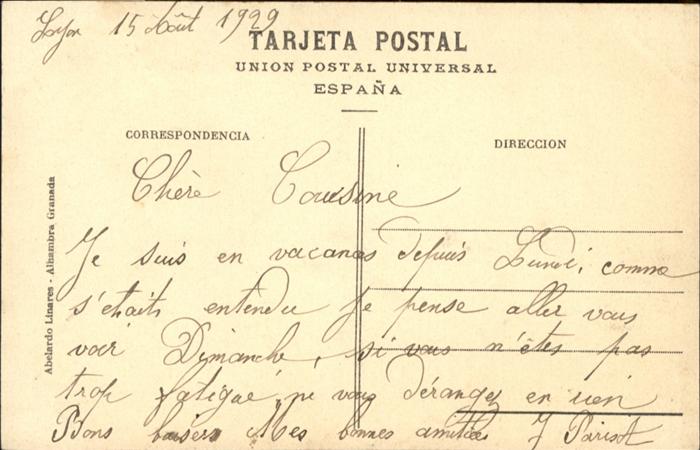 Lyon 15 Août 1929
TARJETA POSTAL
UNION POSTAL UNIVERSAL
ESPAÑA
CORRESPONDENCIA
DIRECCION
Abelardo Linares - Alhambra Granada
Chère Cousine
Je suis en vacances depuis Lundi, comme
s'etaits entendu je pense aller vous
voir Dimanche, si vous n'êtes pas
trop fatigué, ne vous dérangez en rien
Bons baisers Mes bonnes amitiés J Parisot